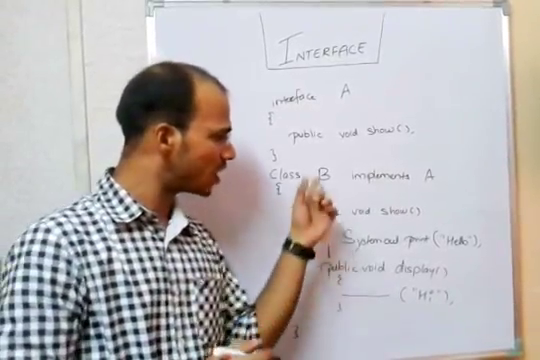 INTERFACE
interface A
{
public void show();
}
Class B implements A
{
void show()
System.out.print("Hello");
}
public void display()
{
("Hi");
}
}